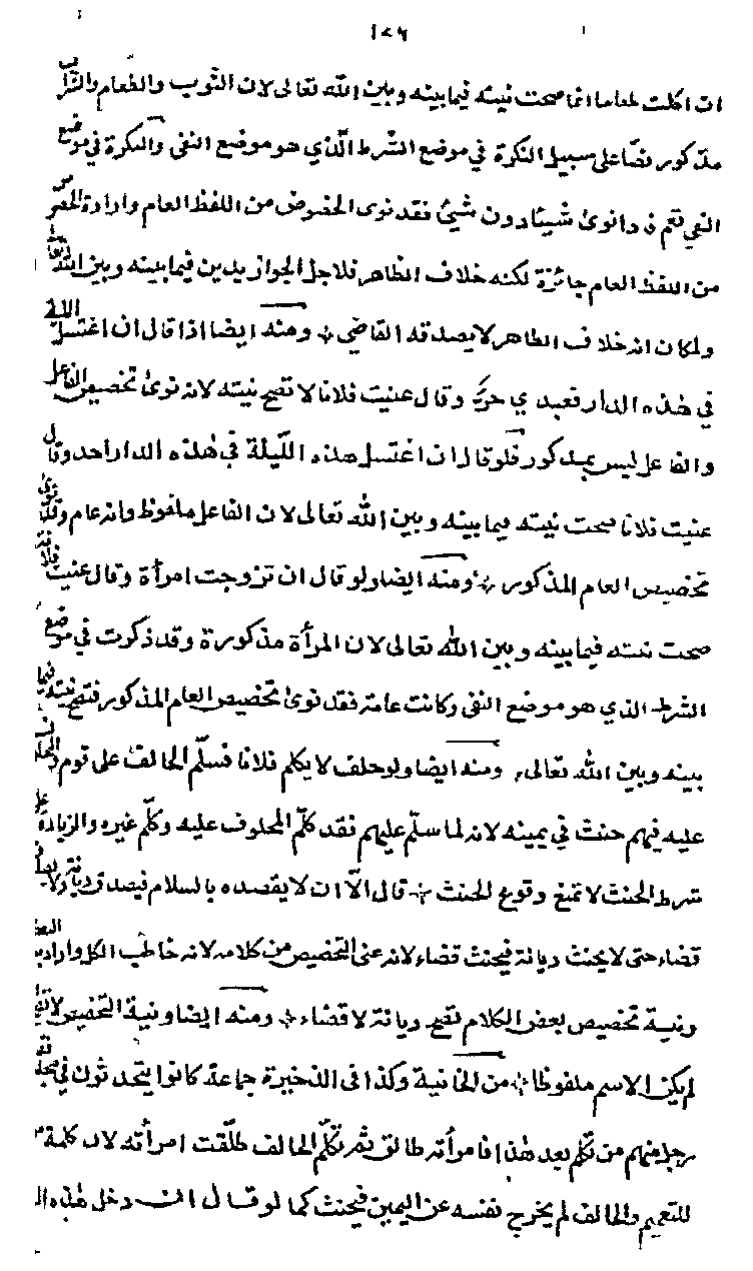 ١٨٦
ان اكلت طعاما انما صحت نيته فيما بينه وبين الله تعالى لان الثوب والطعام والشراب
مذكور نصا على سبيل النكرة في موضع الشرط الذي هو موضع النفى والنكرة في موضع
النفي تعم فاذا نوى شيئا دون شيئ فقد نوى الخصوص من اللفظ العام وارادة الخصوص
من اللفظ العام جائزة لكنه خلاف الظاهر فلاجل الجواز يدين فيما بينه وبين الله تعالى
ولمكان انه خلاف الظاهر لا يصدقه القاضي ومنه ايضا اذا قال ان اغتسل الليلة
في هذه الدار فعبدي حر وقال عنيت فلانا لا تصح نيته لانه نوى تخصيص الفاعل
والفاعل ليس بمذكور فلو قال ان اغتسل هذه الليلة في هذه الدار احد وقال
عنيت فلانا صحت نيته فيما بينه وبين الله تعالى لان الفاعل ملفوظ وانه عام وقد نوى
تخصيص العام المذكور ومنه ايضا ولو قال ان تزوجت امرأة وقال عنيت فلانة
صحت نيته فيما بينه وبين الله تعالى لان المرأة مذكورة وقد ذكرت في موضع
الشرط الذي هو موضع النفى وكانت عامة فقد نوى تخصيص العام المذكور فتصح نيته فيما
بينه وبين الله تعالى ومنه ايضا ولو حلف لا يكلم فلانا فسلم الحالف على قوم المحلوف
عليه فيهم حنث في يمينه لانه لما سلم عليهم فقد كلم المحلوف عليه وكلم غيره والزيادة على
شرط الحنث لا تمنع وقوع الحنث قال الا ان لا يقصده بالسلام فيصدق ديانة ولا يصدق
قضاء حتى لا يحنث ديانة فيحنث قضاء لانه عنى التخصيص من كلامه لانه خاطب الكل واراد به البعض
ونية تخصيص بعض الكلام تصح ديانة لا قضاء ومنه ايضا ونية التخصيص لا تصح
لم يكن الاسم ملفوظا من الخانية وكذا فى الذخيرة جماعة كانوا يتحدثون في
رجل منهم من تكلم بعد هذا فامرأته طالق ثم تكلم الحالف طلقت امرأته لان كلمة
للتعميم والحالف لم يخرج نفسه عن اليمين فيحنث كما لو قال ان دخل هذه